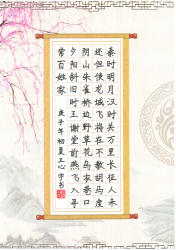 秦时明月汉时关万里长征人未
还但使龙城飞将在不教胡马度
阴山朱雀桥边野草花乌衣巷口
夕阳斜旧时王谢堂前燕飞入寻
常百姓家
庚子年初夏王心宇书